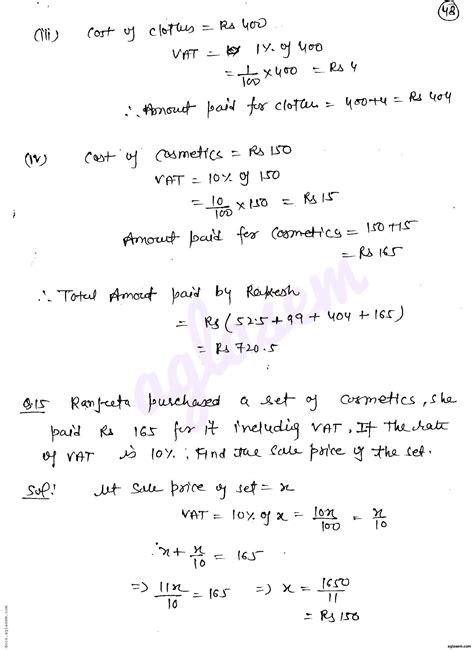 48
(iii) Cost of clothes = Rs 400
VAT = 1% of 400
= 1/100 × 400 = Rs 4
∴ Amount paid for clothes = 400+4 = Rs 404
(iv) Cost of cosmetics = Rs 150
VAT = 10% of 150
= 10/100 × 150 = Rs 15
Amount paid for cosmetics = 150+15
= Rs 165
∴ Total Amount paid by Rakesh
= Rs (52.5 + 99 + 404 + 165)
= Rs 720.5
aglasem
Q15 Ranjeeta purchased a set of cosmetics, she
paid Rs 165 for it includig VAT, If the rate
of VAT is 10%. Find the sale price of the set.
Sol: let sale price of set = x
VAT = 10% of x = 10x/100 = x/10
∴ x + x/10 = 165
=> 11x/10 = 165 => x = 1650/11
= Rs 150
docs.aglasem.com
aglasem.com